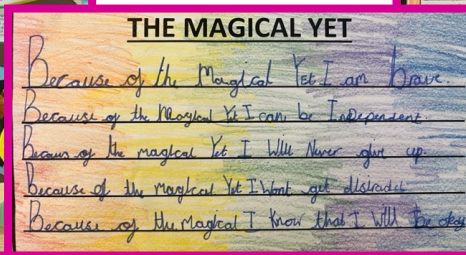 THE MAGICAL YET
Because of the Magical Yet I am brave.
Because of the Magical Yet I can be Independent.
Becaus of the magical Yet I Will Never give up.
Because of the Magical Yet I Wont get distradit
Because of the Magical I Know that I Will be okay